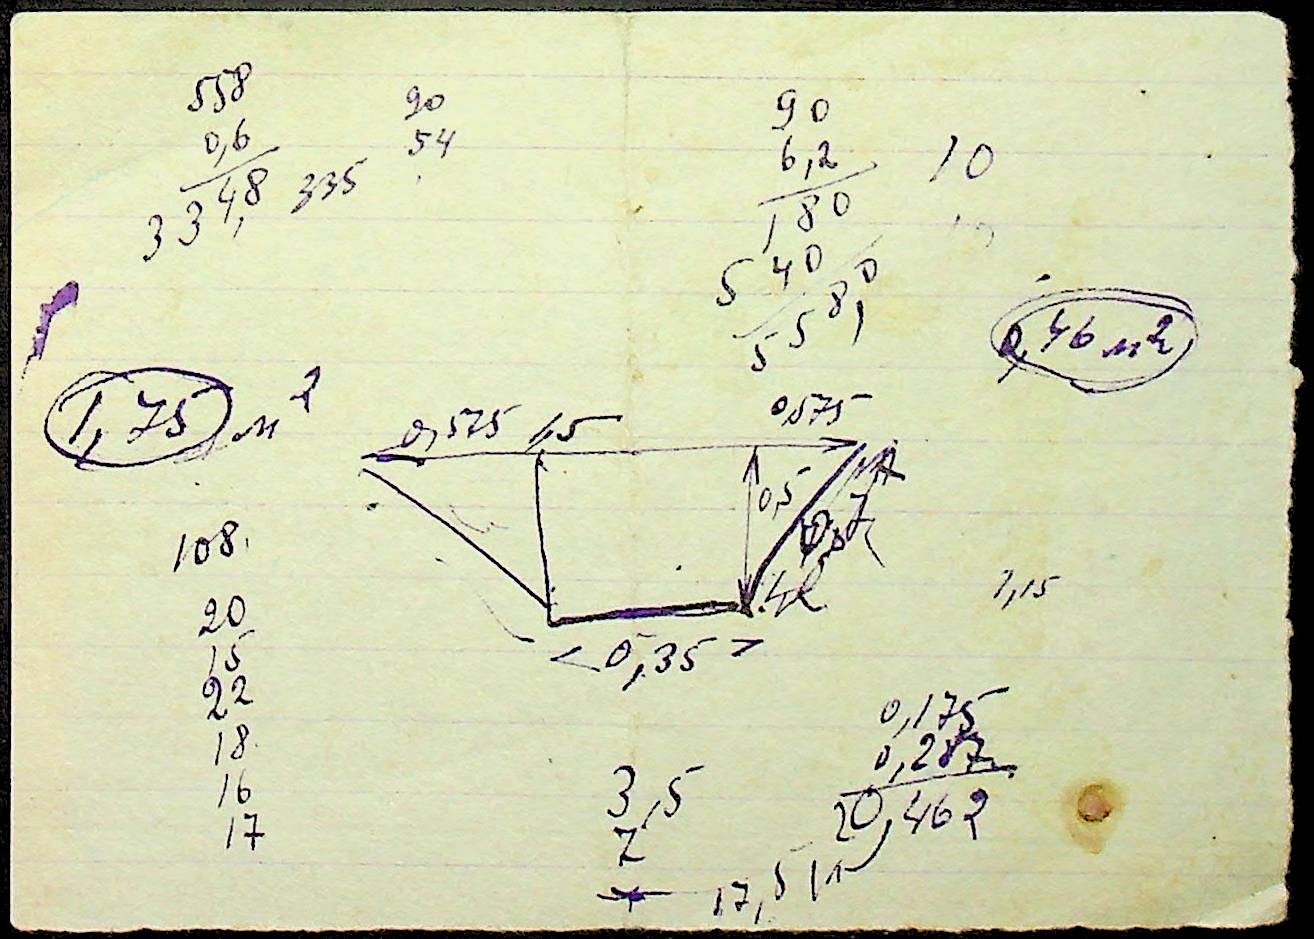 558
0,6
334,8 335
90
54
90
6,2
180
540
558,0
10
0,46 м²
1,75 м²
0,575 1,5 0,575
0,5
0,7
0,35
1,15
108
20
15
22
18
16
17
3,5
0,175
0,287
0,462
17,5